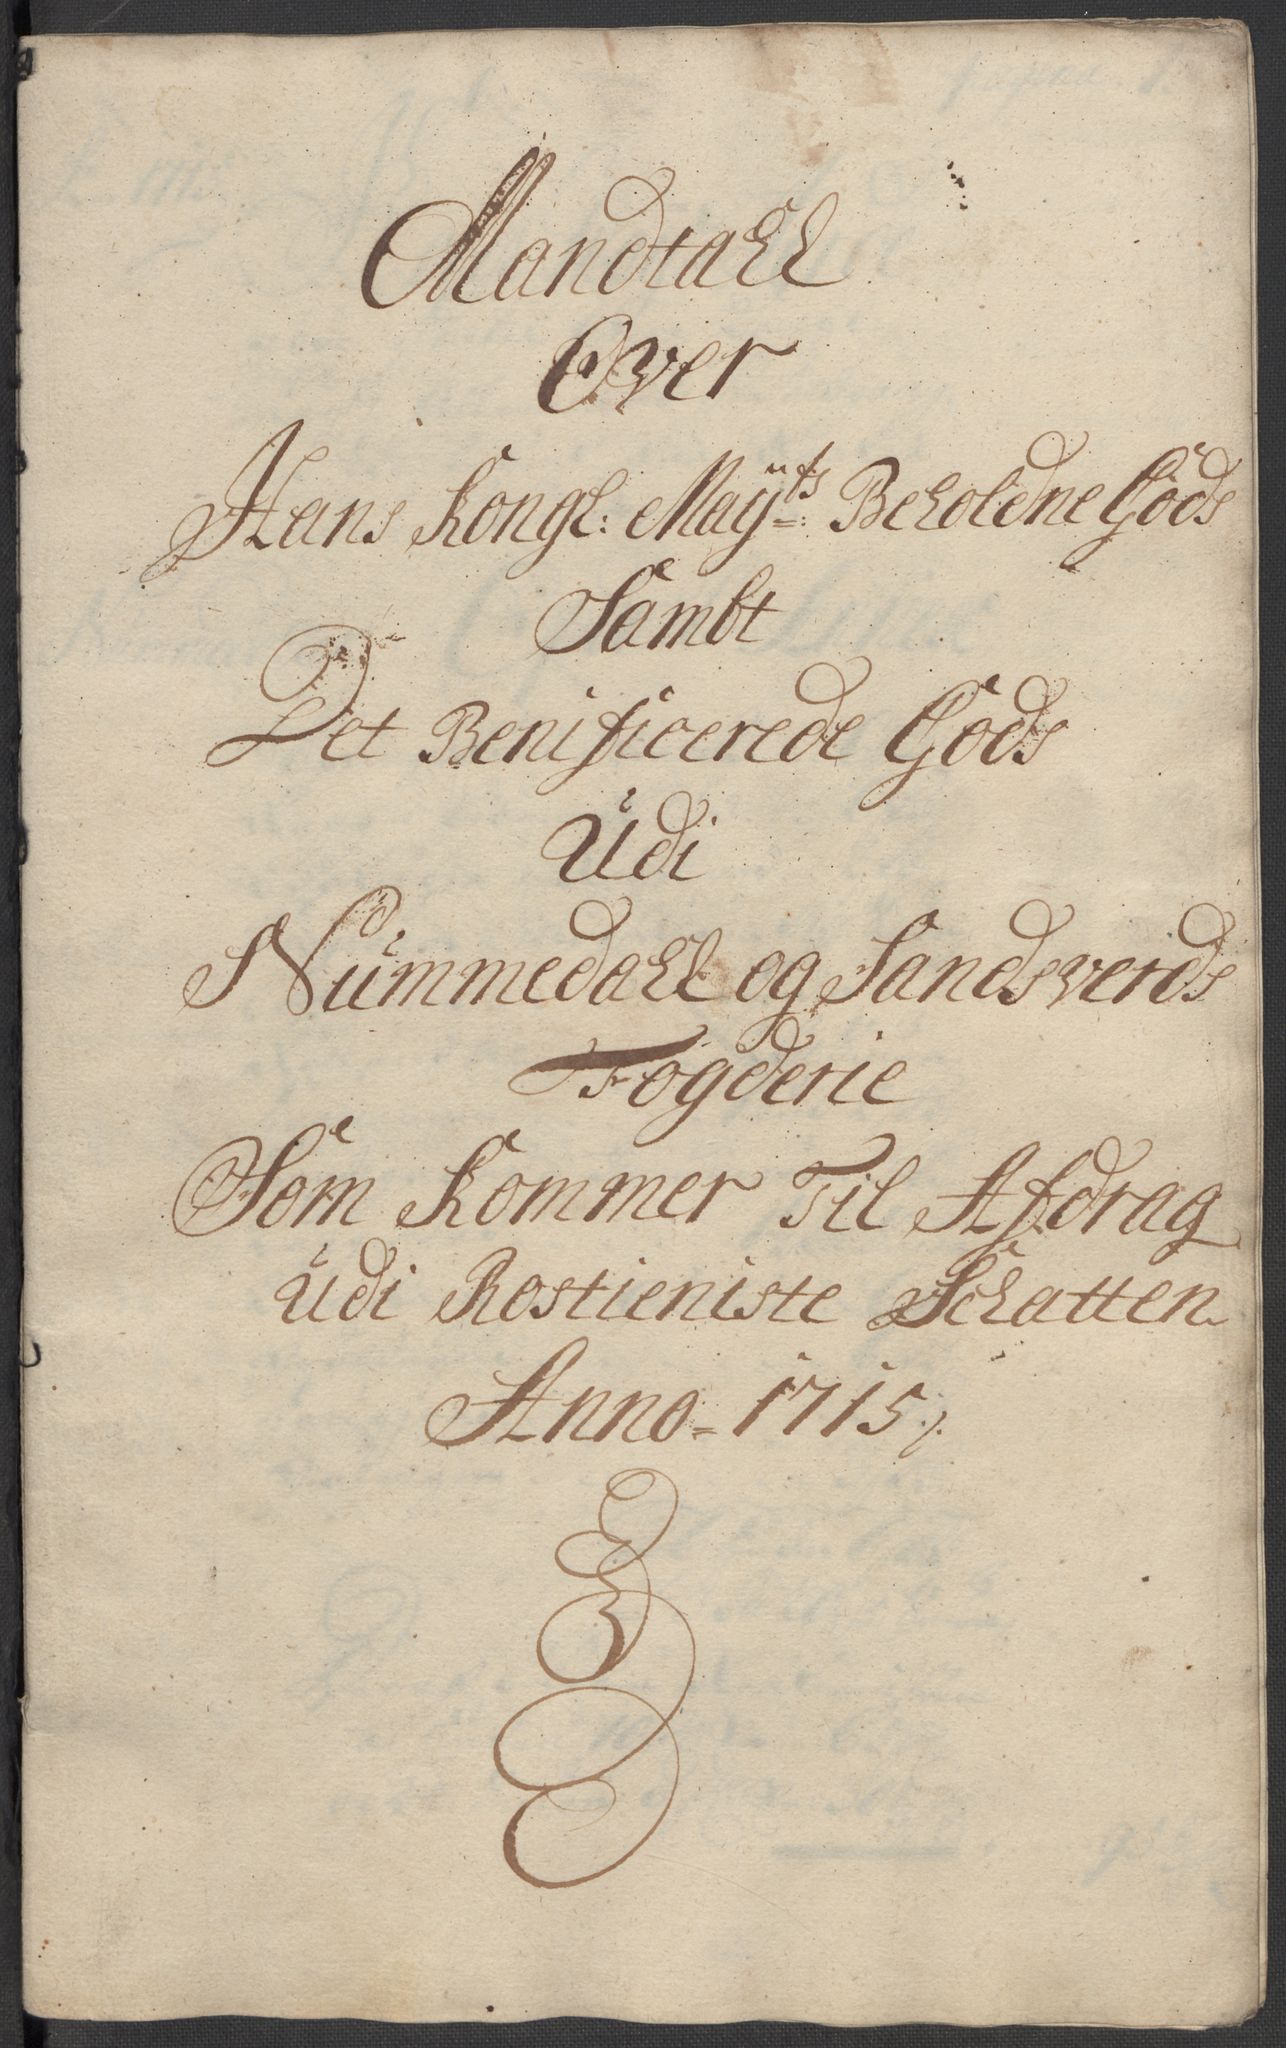 Mandtahl
Over
Hans Kongl: Mayts: Beholdne Gods
Sambt
Det Benificerede Gods
Udi
Nummedahl og Sandsverds
Fogderie
Som Kommer Til Afdrag
Udi Rostieniste Schatten
Anno = 1715 ⁒